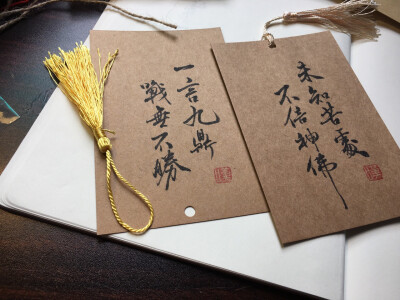 一言九鼎
戰無不勝
未知苦處
不信神佛